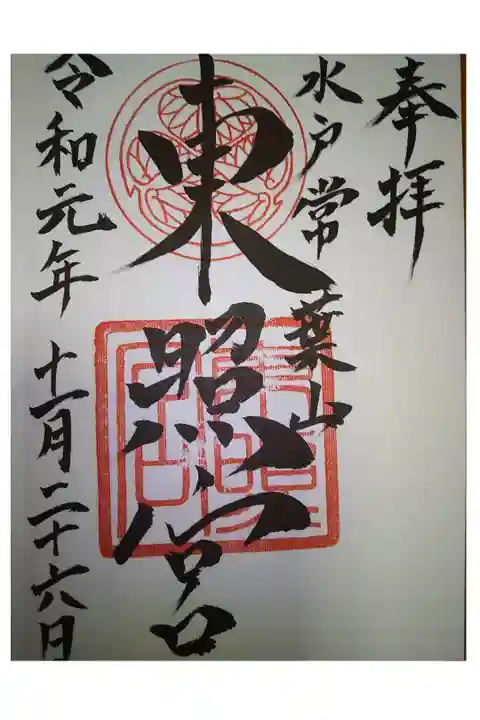 奉拝
水戸常葉山
東照宮
令和元年十一月二十六日